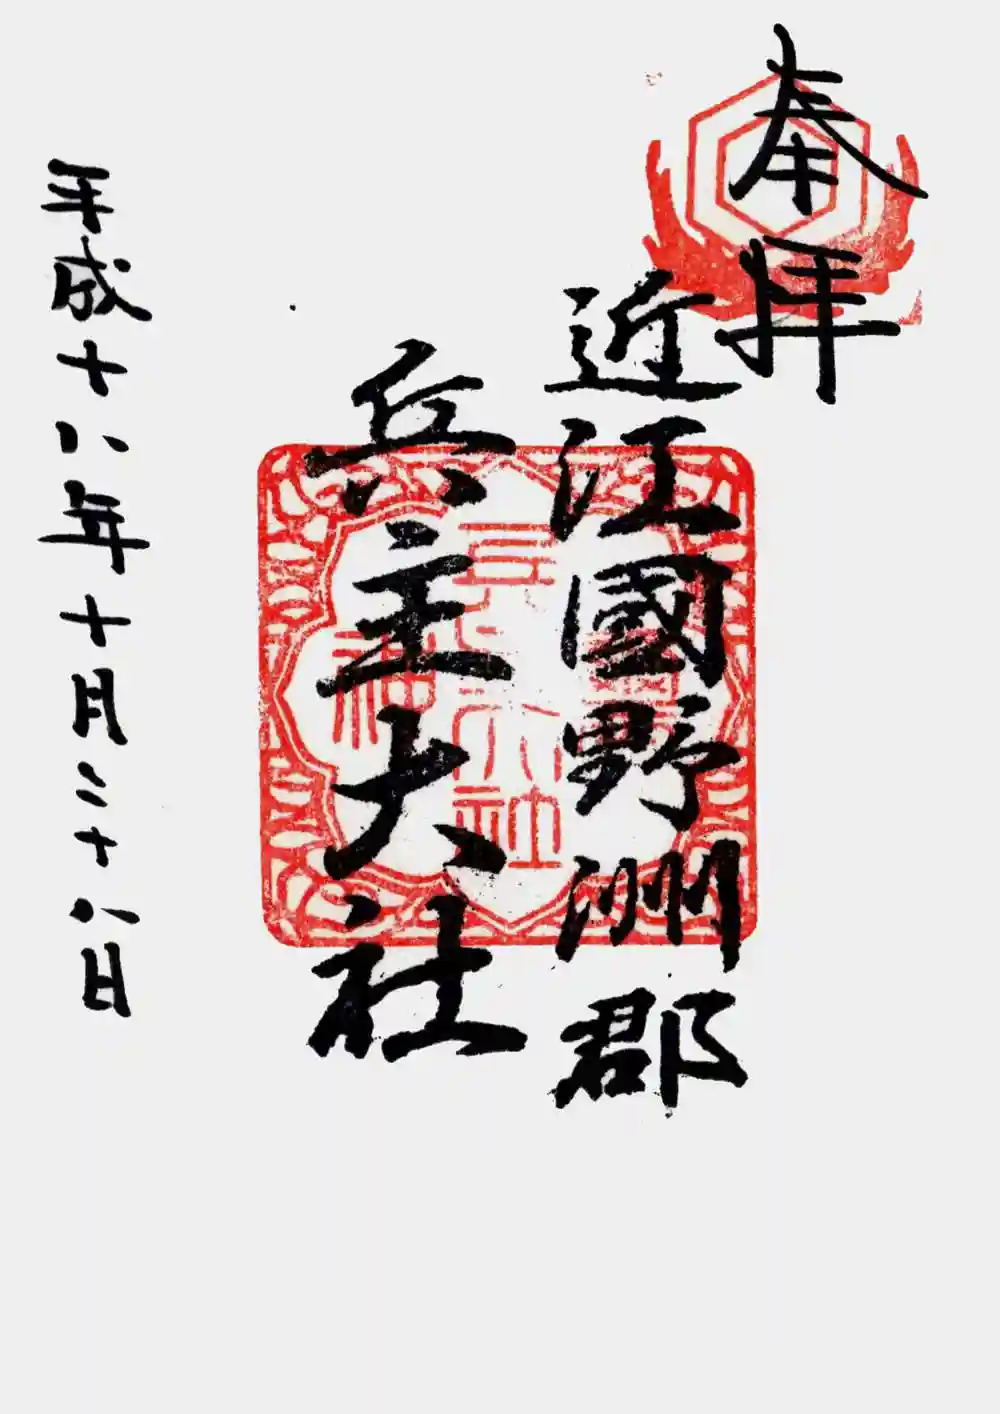 奉拝
近江國野洲郡
兵主大社
平成十八年十月二十八日
兵主大社